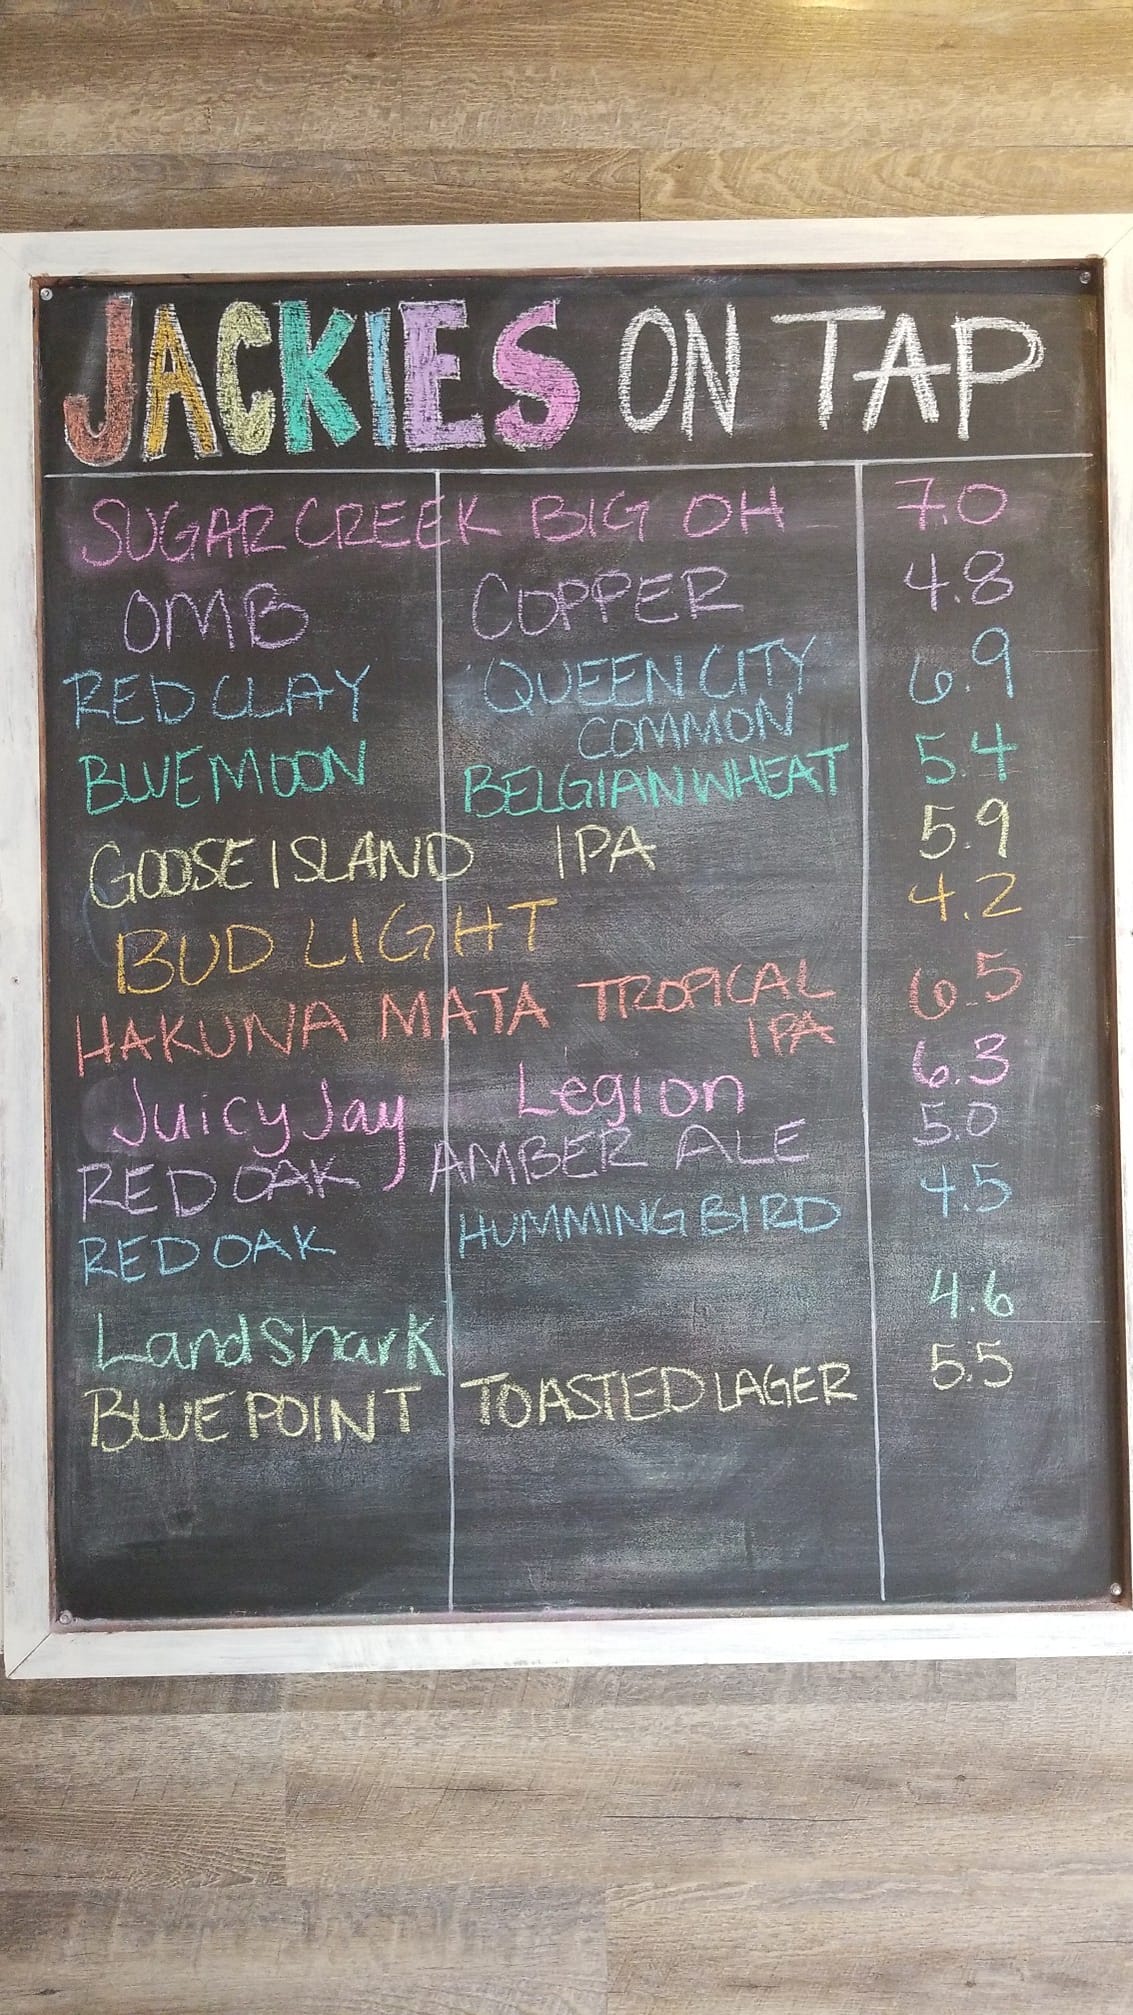 JACKIES ON TAP
SUGAR CREEK BIG OH 7.0
OMB COPPER 4.8
RED CLAY QUEEN CITY 6.9
COMMON
BLUE MOON BELGIAN WHEAT 5.4
GOOSE ISLAND IPA 5.9
BUD LIGHT 4.2
HAKUNA MATA TROPICAL 6.5
IPA
Juicy Jay Legion 6.3
RED OAK AMBER ALE 5.0
RED OAK HUMMING BIRD 4.5
Land Shark 4.6
BLUE POINT TOASTED LAGER 5.5